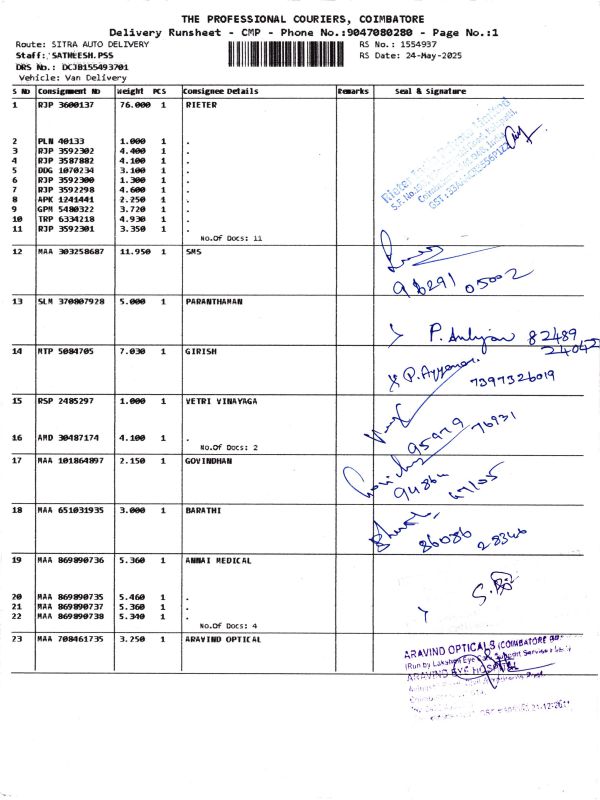 THE PROFESSIONAL COURIERS, COIMBATORE
Delivery Runsheet - CMP - Phone No.:9047080280 - Page No.:1
Route: SITRA AUTO DELIVERY RS No.: 1554937
Staff: SATHEESH.PSS RS Date: 24-May-2025
DRS No.: DCJB155493701
Vehicle: Van Delivery
S No Consignment No Weight PCS Consignee Details Remarks Seal & Signature
1 RJP 3600137 76.000 1 RIETER
2 PLN 40133 1.000 1 .
3 RJP 3592302 4.400 1 .
4 RJP 3587882 4.100 1 .
5 DDG 1070234 3.100 1 .
6 RJP 3592300 1.300 1 .
7 RJP 3592298 4.600 1 .
8 APK 1241441 2.250 1 .
9 GPM 5480322 3.720 1 .
10 TRP 6334218 4.930 1 .
11 RJP 3592301 3.350 1 .
No.Of Docs: 11
12 MAA 303258687 11.950 1 SMS
98291 05002
13 SLM 370807928 5.000 1 PARANTHAMAN
82489
24042
14 MTP 5084705 7.030 1 GIRISH
P. Ayyanar
7397326019
15 RSP 2485297 1.000 1 VETRI VINAYAGA
95979 76931
16 AMD 30487174 4.100 1 .
No.Of Docs: 2
17 MAA 101864897 2.150 1 GOVINDHAN
18 MAA 651031935 3.000 1 BARATHI
86086 28346
19 MAA 869890736 5.360 1 ANNAI MEDICAL
20 MAA 869890735 5.460 1 .
21 MAA 869890737 5.360 1 .
22 MAA 869890738 5.340 1 .
No.Of Docs: 4
23 MAA 708461735 3.250 1 ARAVIND OPTICAL
ARAVIND OPTICALS (COIMBATORE
(Run by Lakshmi Eye
ARAVIND EYE HOSPITAL